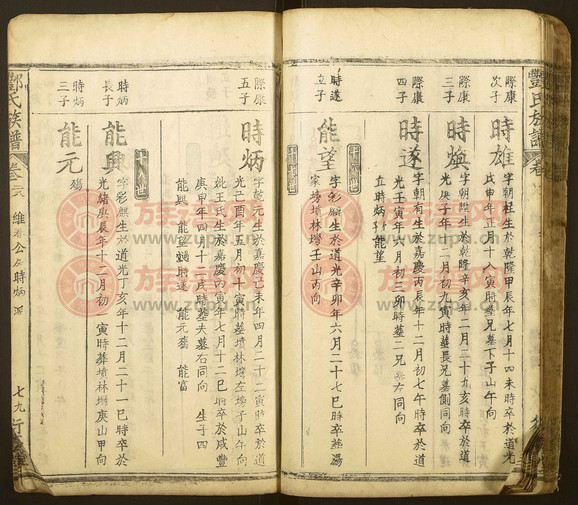 鄷氏族譜
際康
次子
時雄
字朝桂生於乾隆甲辰年七月十四未時卒於道光
戊申年正月十八寅時葬兄墓下子山午向
際康
三子
時𤏡
字朝陞生於乾隆辛亥年二月二十九亥時卒於道
光庚子年十二月初九寅時葬長兄墓側同向
際康
四子
時遂
字朝有生於嘉慶丙辰年十二月初七午時卒於道
光壬寅年六月初三卯時葬二兄墓右同向
立時炳子能望
十八世
時遂
立子
能望
字彩 生於道光辛卯年六月二十七巳時卒葬湯
家塝墳林塝壬山丙向
十七世
際康
五子
時炳
字乾元生於嘉慶己未年四月二十二寅時卒於道
光己酉年五月初十寅時葬墓墳林塝左塝子山午向
姚王氏生於嘉慶丙寅年七月十二 時卒於咸豐
庚申年四月十二戌時葬夫墓右同向 生子四
能興 能望 時遂 能元殤 能富
十八世
時炳
長子
能興
字彩麒生於道光丁亥年十二月二十一巳時卒於
光緒庚辰年十二月初一寅時葬墳林塝庚山甲向
時炳
三子
能元
殤
鄷氏族譜
卷二六
維 公房時炳派
七九